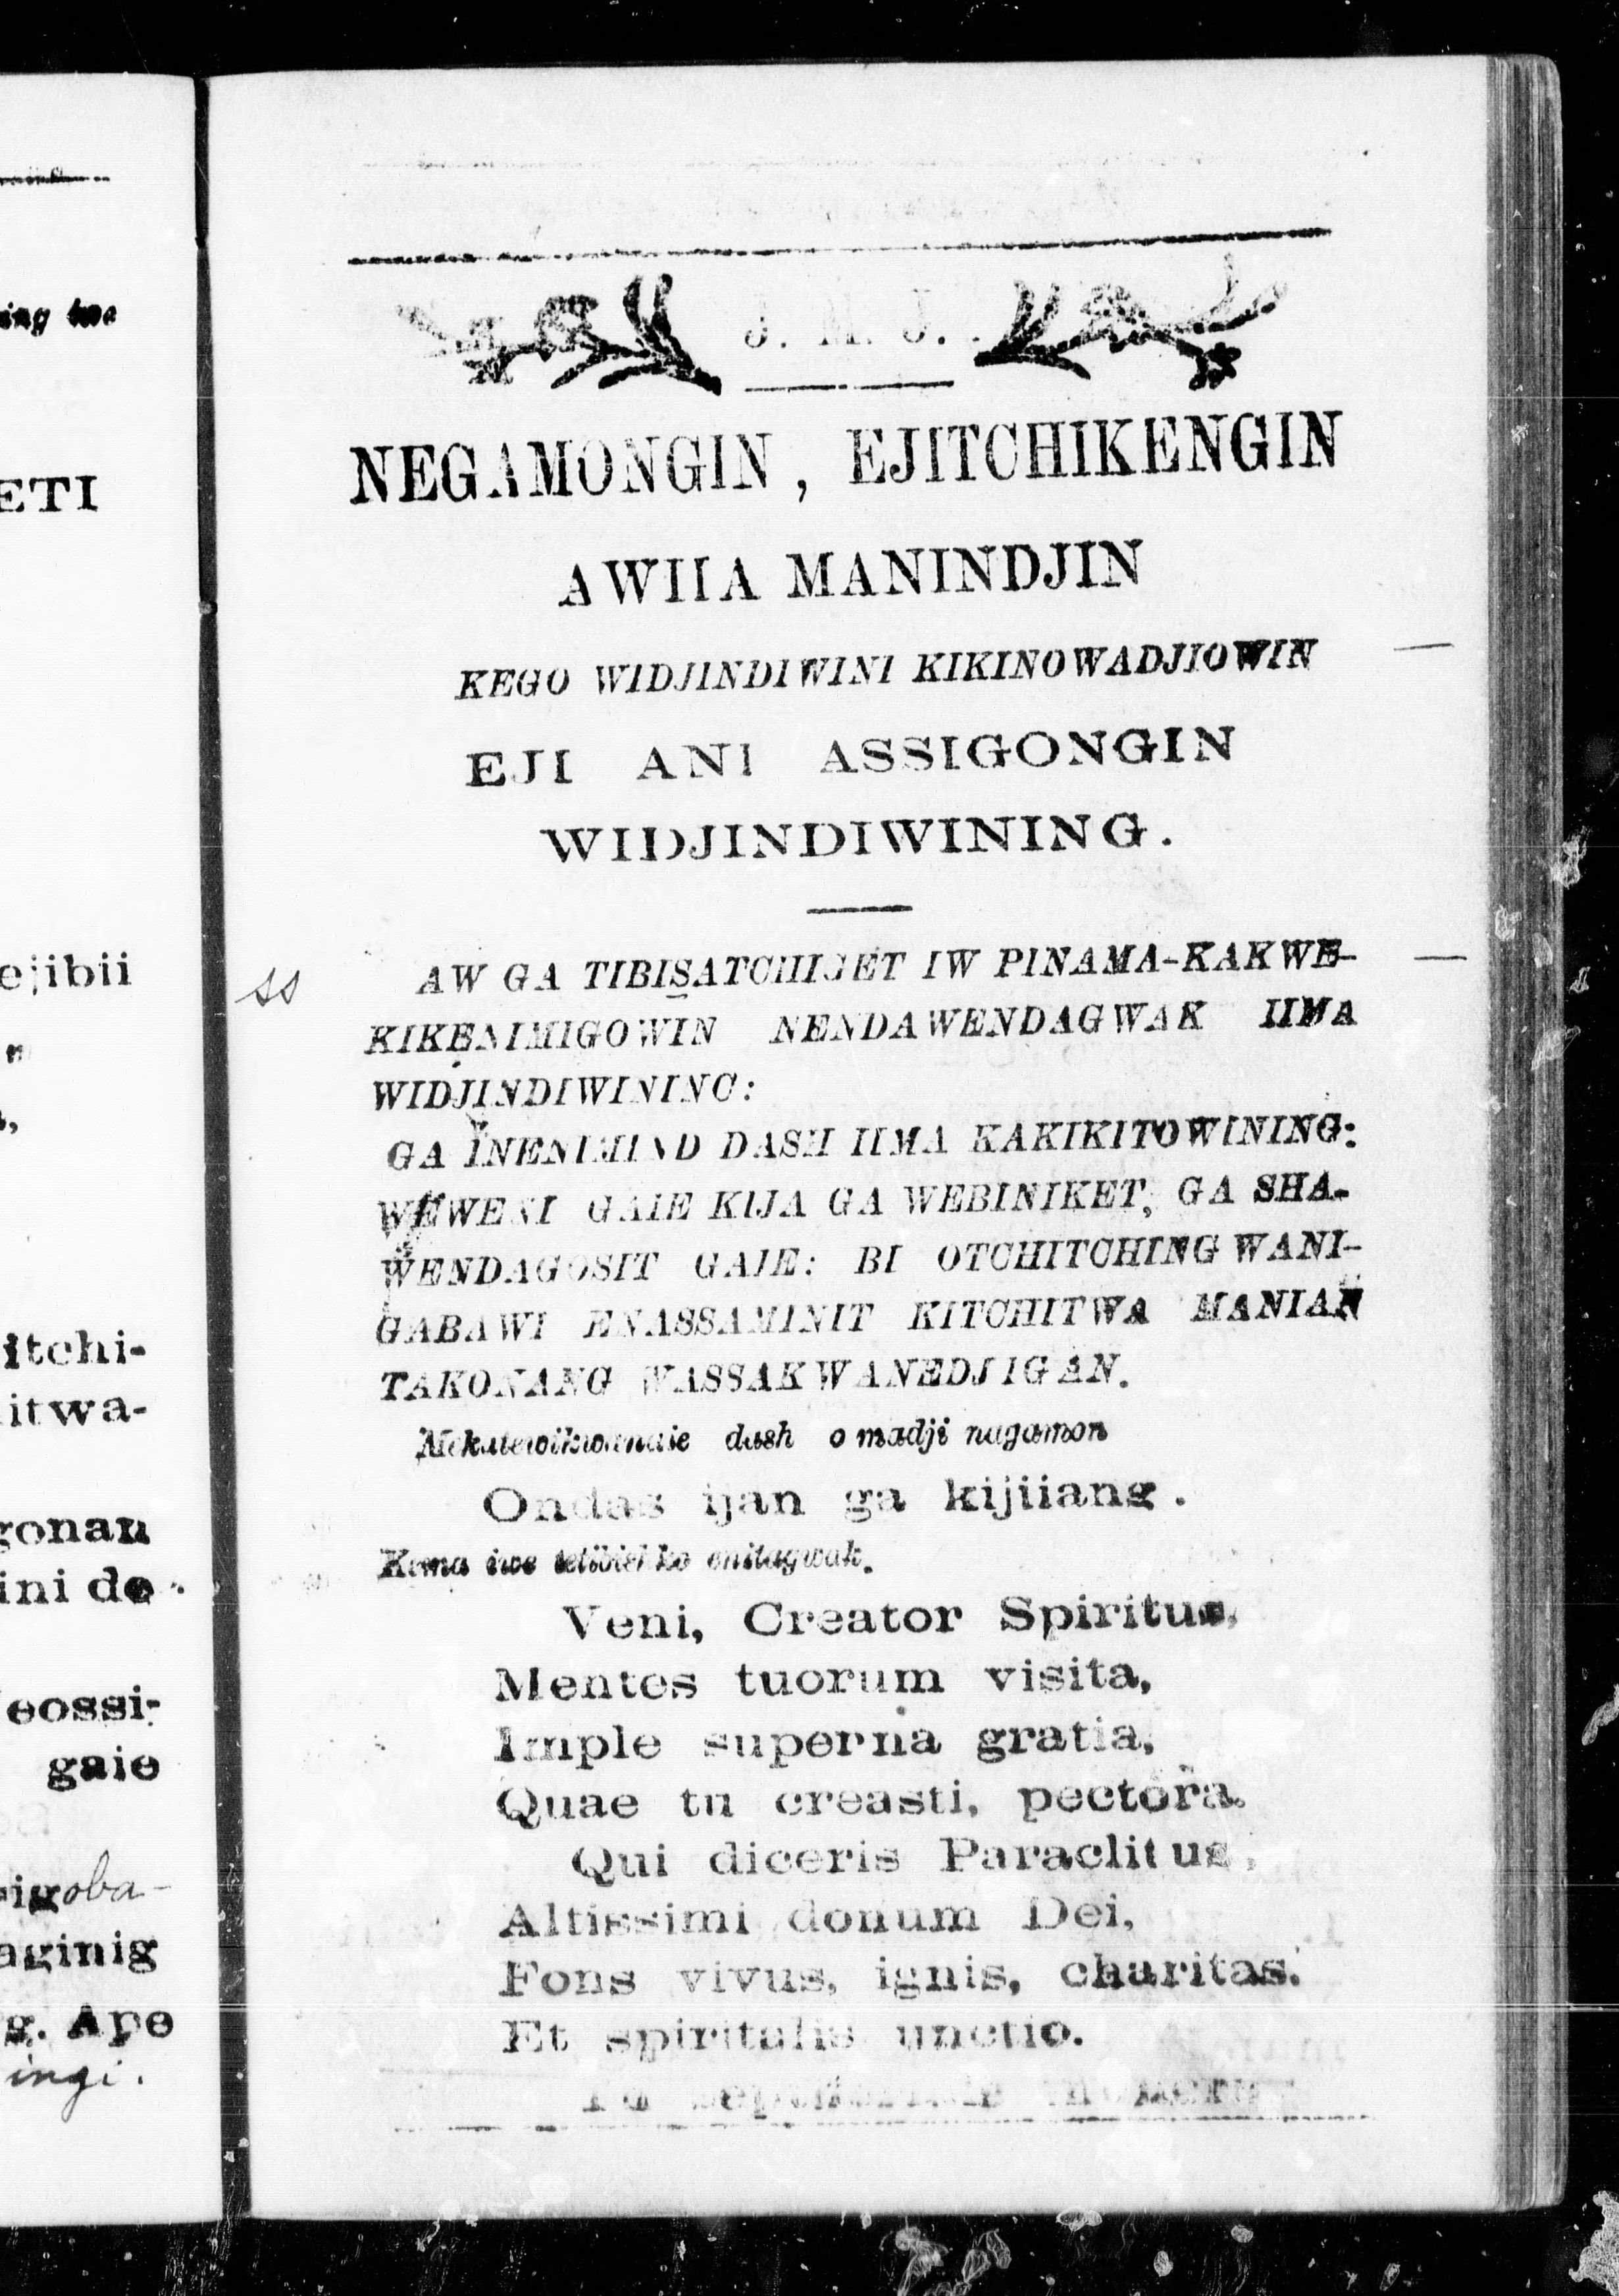 ing iwe
ETI
ejibii
itchi-
itwa-
gonan
ini de
eossi-
gaie
igoba-
aginig
g. Ape
ingi.
J. M. J.
NEGAMONGIN, EJITCHIKENGIN
AWIIA MANINDJIN
KEGO WIDJINDIWINI KIKINOWADJIOWIN
EJI ANI ASSIGONGIN
WIDJINDIWINING.
ss
AW GA TIBISATCHIGET IW PINAMA-KAKWE-
KIKENIMIGOWIN NENDAWENDAGWAK IIMA
WIDJINDIWINING:
GA INENIMIND DASH IIMA KAKIKITOWINING:
WEWENI GAIE KIJA GA WEBINIKET, GA SHA-
WENDAGOSIT GAIE: BI OTCHITCHING WANI-
GABAWI ENASSAMINIT KITCHITWA MANIAN
TAKONANG WASSAKWANEDJIGAN.
Mekatewikwanaie dash o madji nagamon
Ondas ijan ga kijiiang.
iwe ko enitagwak.
Veni, Creator Spiritus,
Mentes tuorum visita,
Imple superna gratia,
Quae tu creasti, pectora.
Qui diceris Paraclitus,
Altissimi donum Dei,
Fons vivus, ignis, charitas.
Et spiritalis unctio.